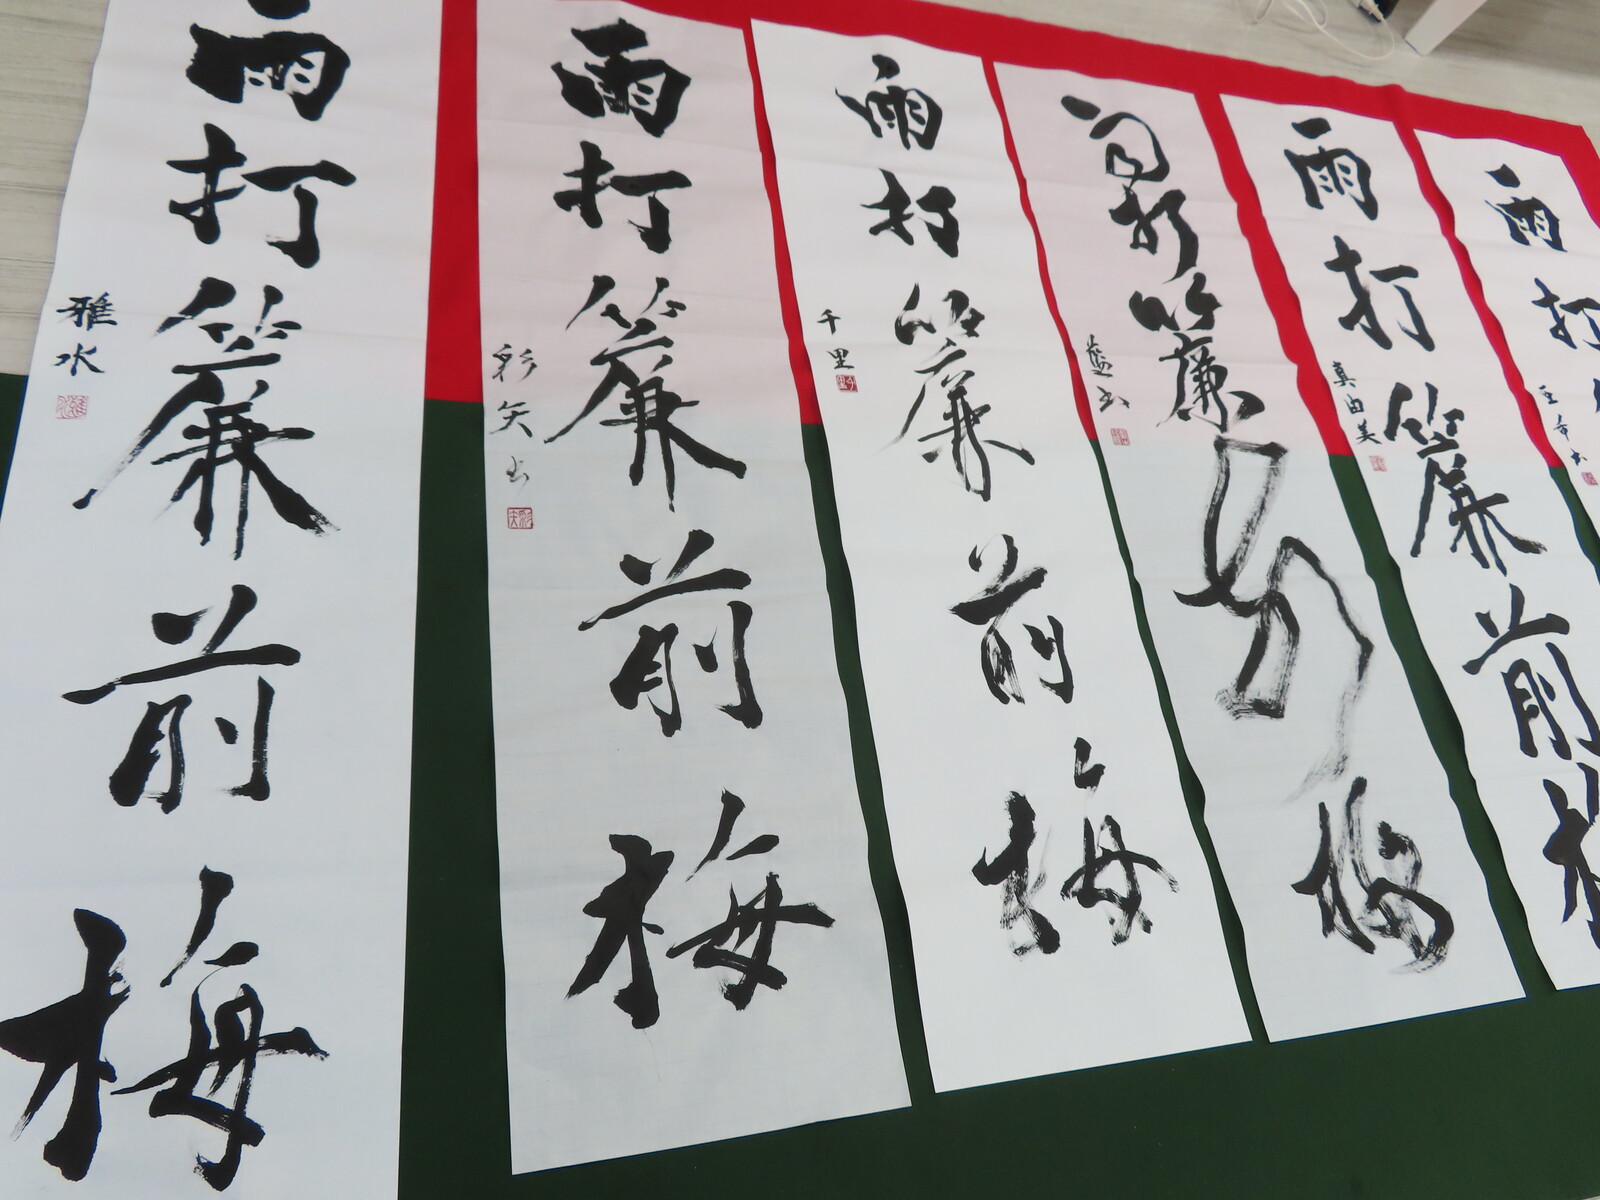 雨打簾前梅
雅水
雨打簾前梅
彩矢書
雨打簾前梅
千里
雨打簾前梅
藍書
雨打簾前梅
真由美
雨打